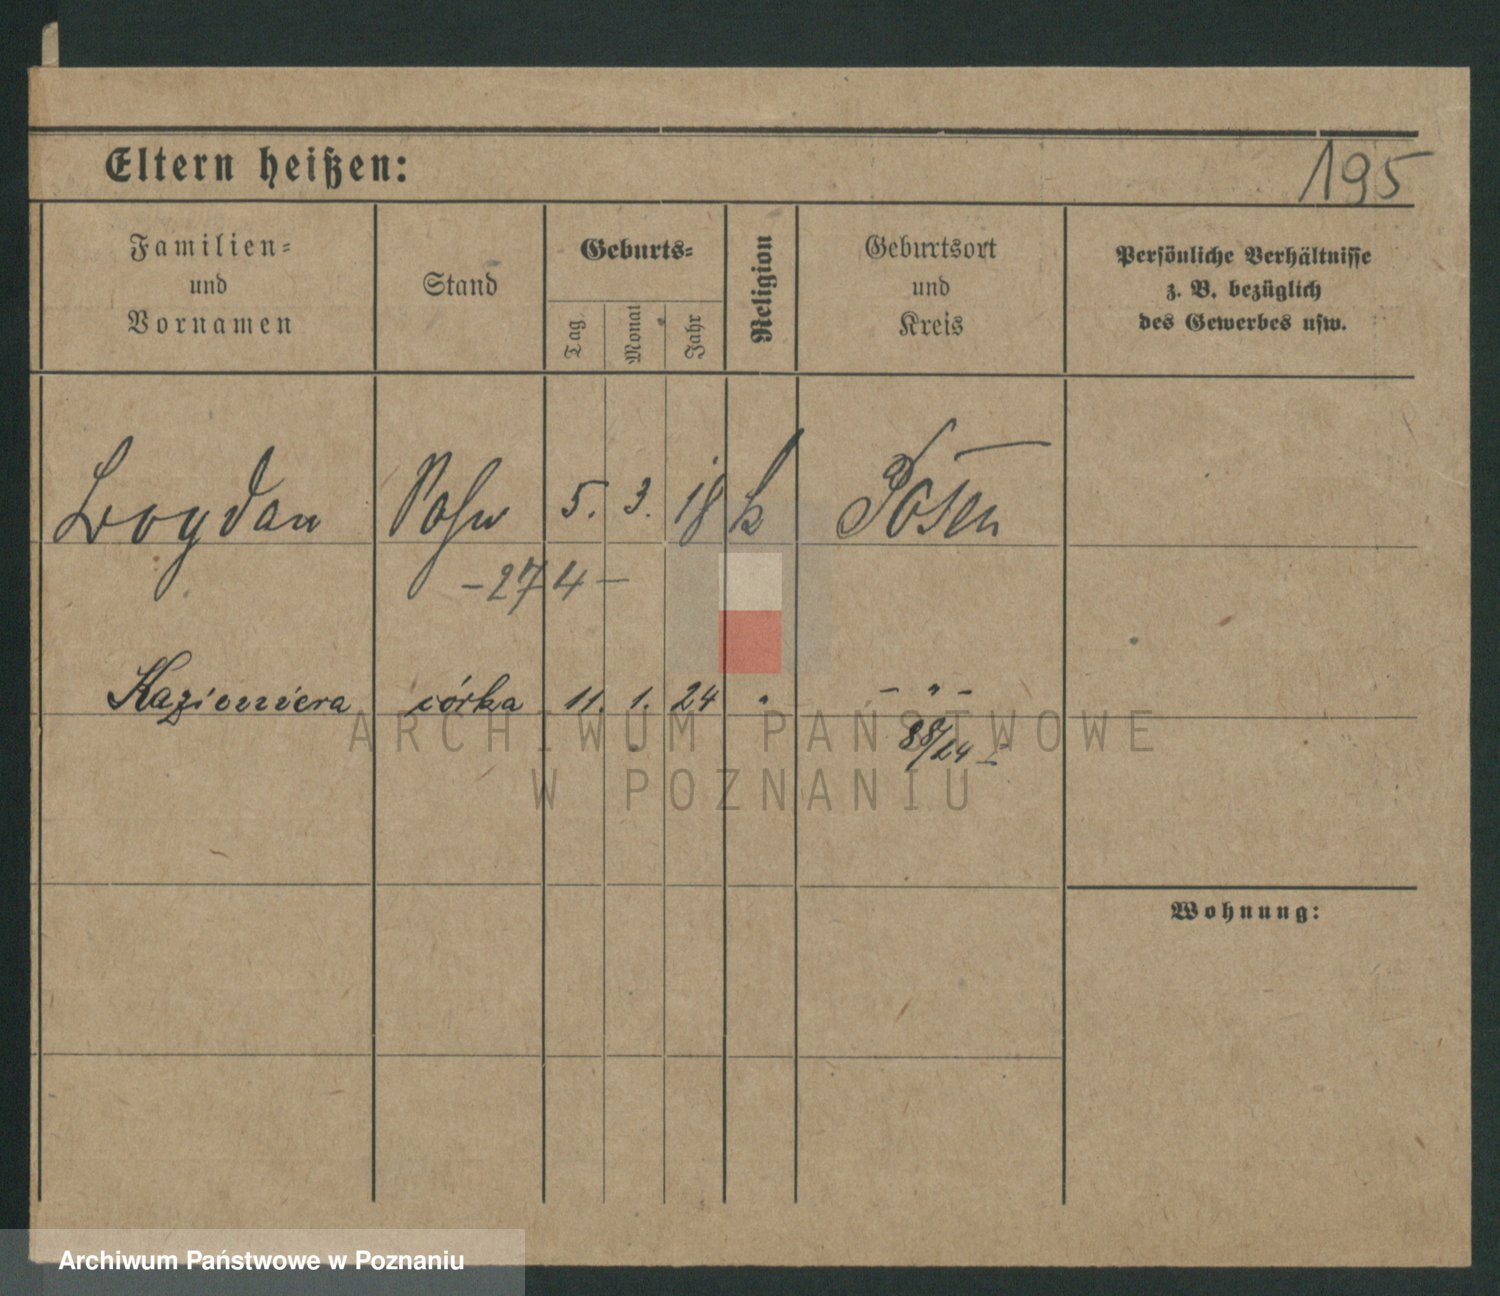 Eltern heißen:
195
Familien=
und
Vornamen
Stand
Geburts=
Tag
Monat
Jahr
Religion
Geburtsort
und
Kreis
Persönliche Verhältnisse
z. B. bezüglich
des Gewerbes usw.
Bogdan Sohn 5. 3. 18 k Posen
-274-
Kazimiera córka 11. 1. 24 " - " -
88/24
ARCHIWUM PAŃSTWOWE
W POZNANIU
Wohnung:
Archiwum Państwowe w Poznaniu